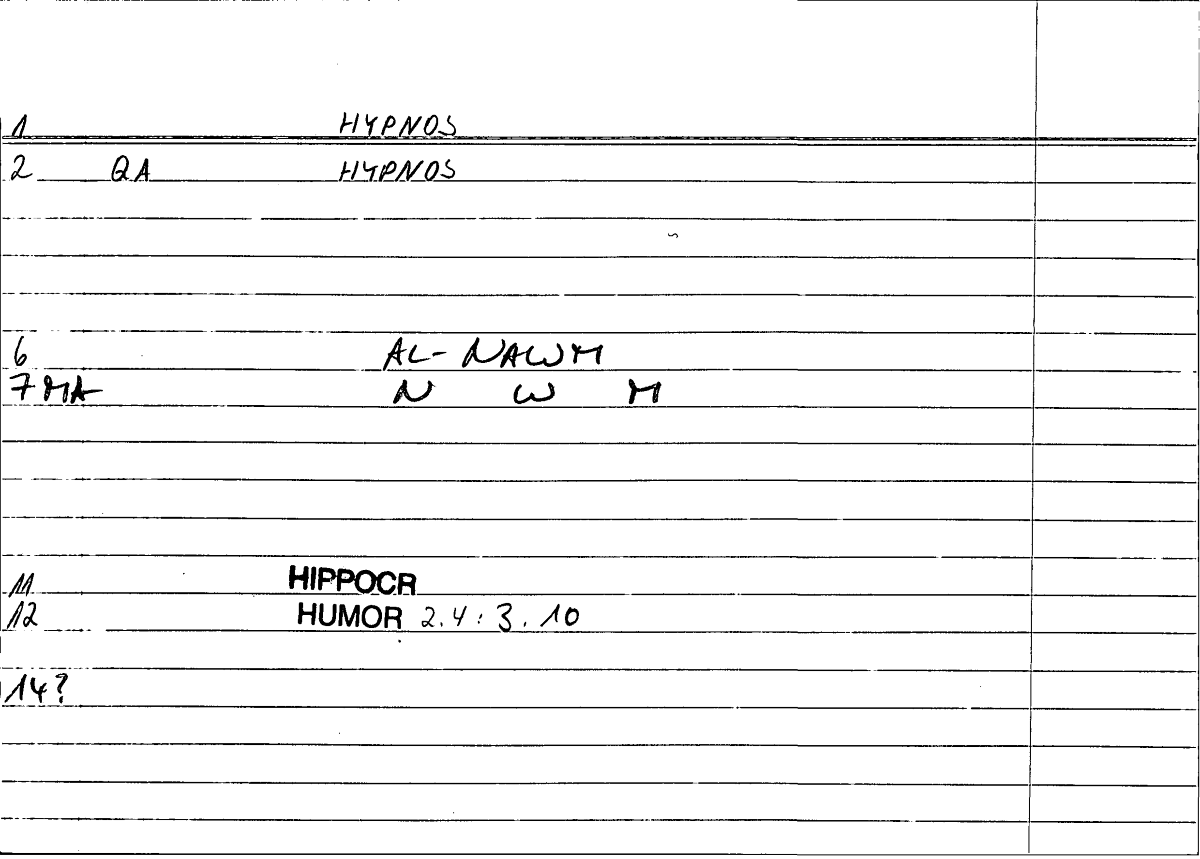 1 HYPNOS
2 QA HYPNOS
6 AL-NAWM
7 MA N W M
11 HIPPOCR
12 HUMOR 2.4:3.10
14?